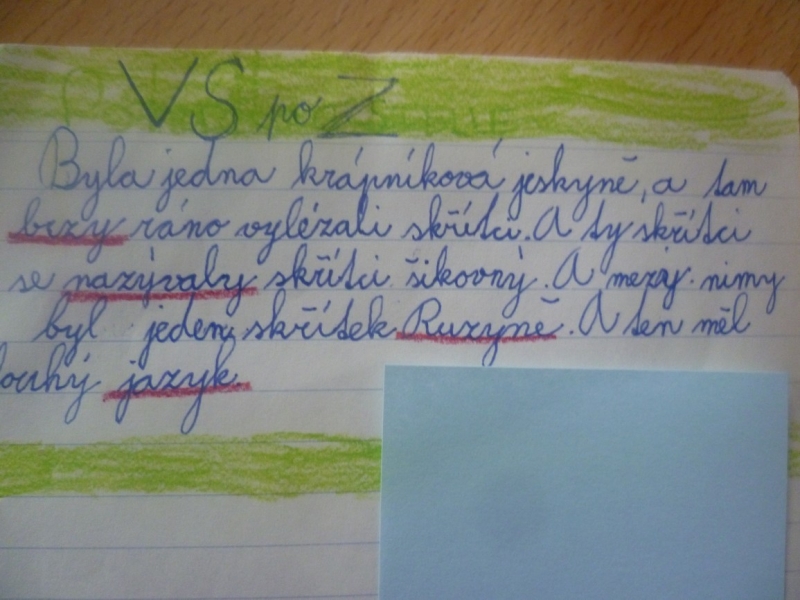 VS po Z
Byla jedna krápníková jeskyně, a tam
brzy ráno vylézali skřítci. A ty skřítci
se nazývaly skřítci šikovný. A mezi nimy
byl jeden skřítek Ruzyně. A ten měl
jazyk.